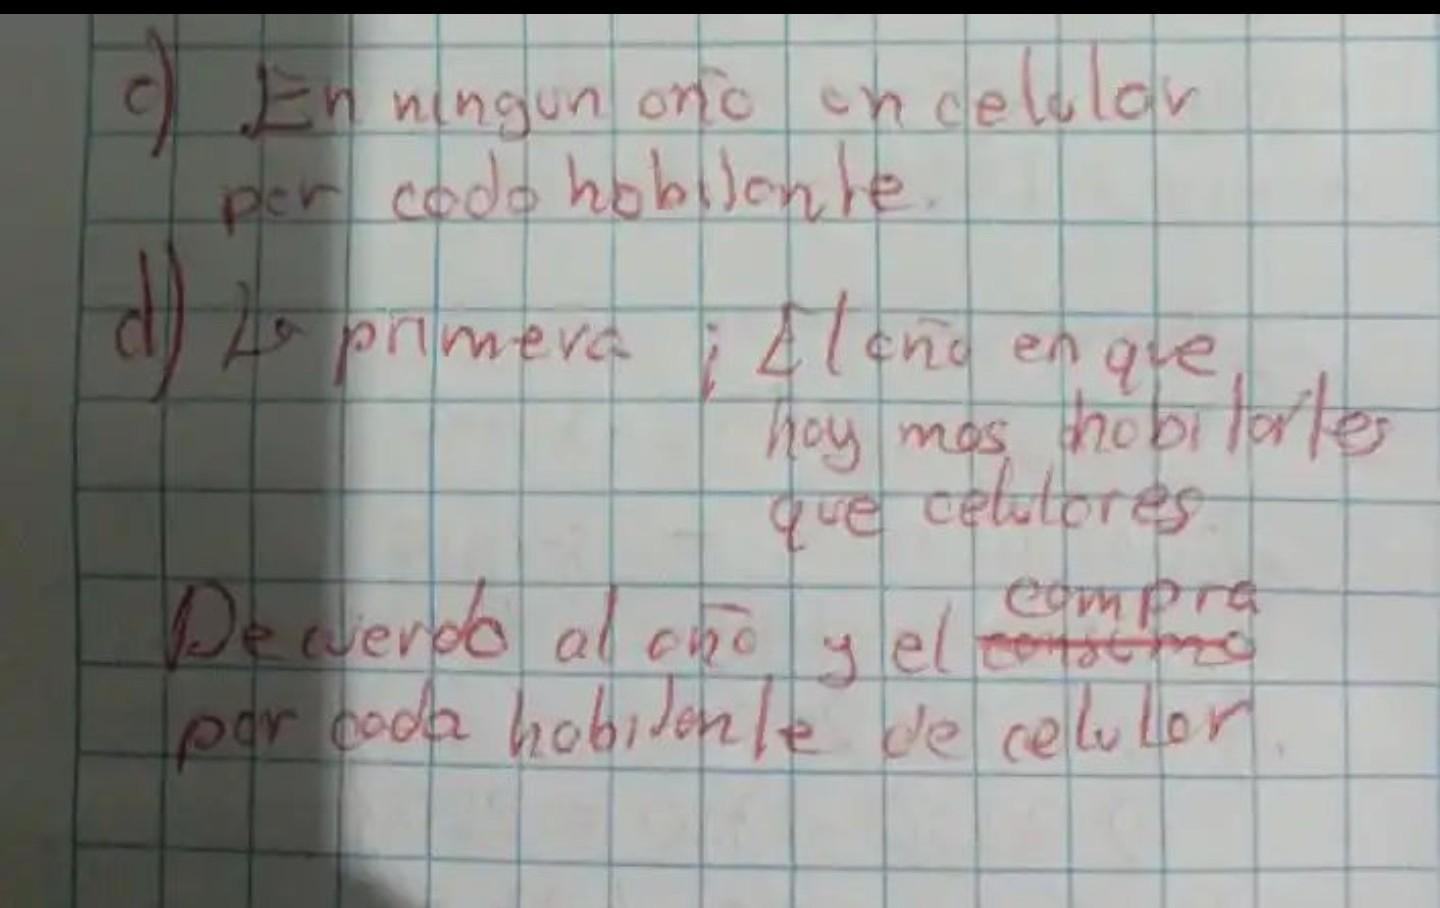 c) En ningun año un celular
por cada habitante.
d) La primera ; El año en que
hay mas habitantes
que celulares
De acuerdo al año y el compra
por cada habitante de celular.